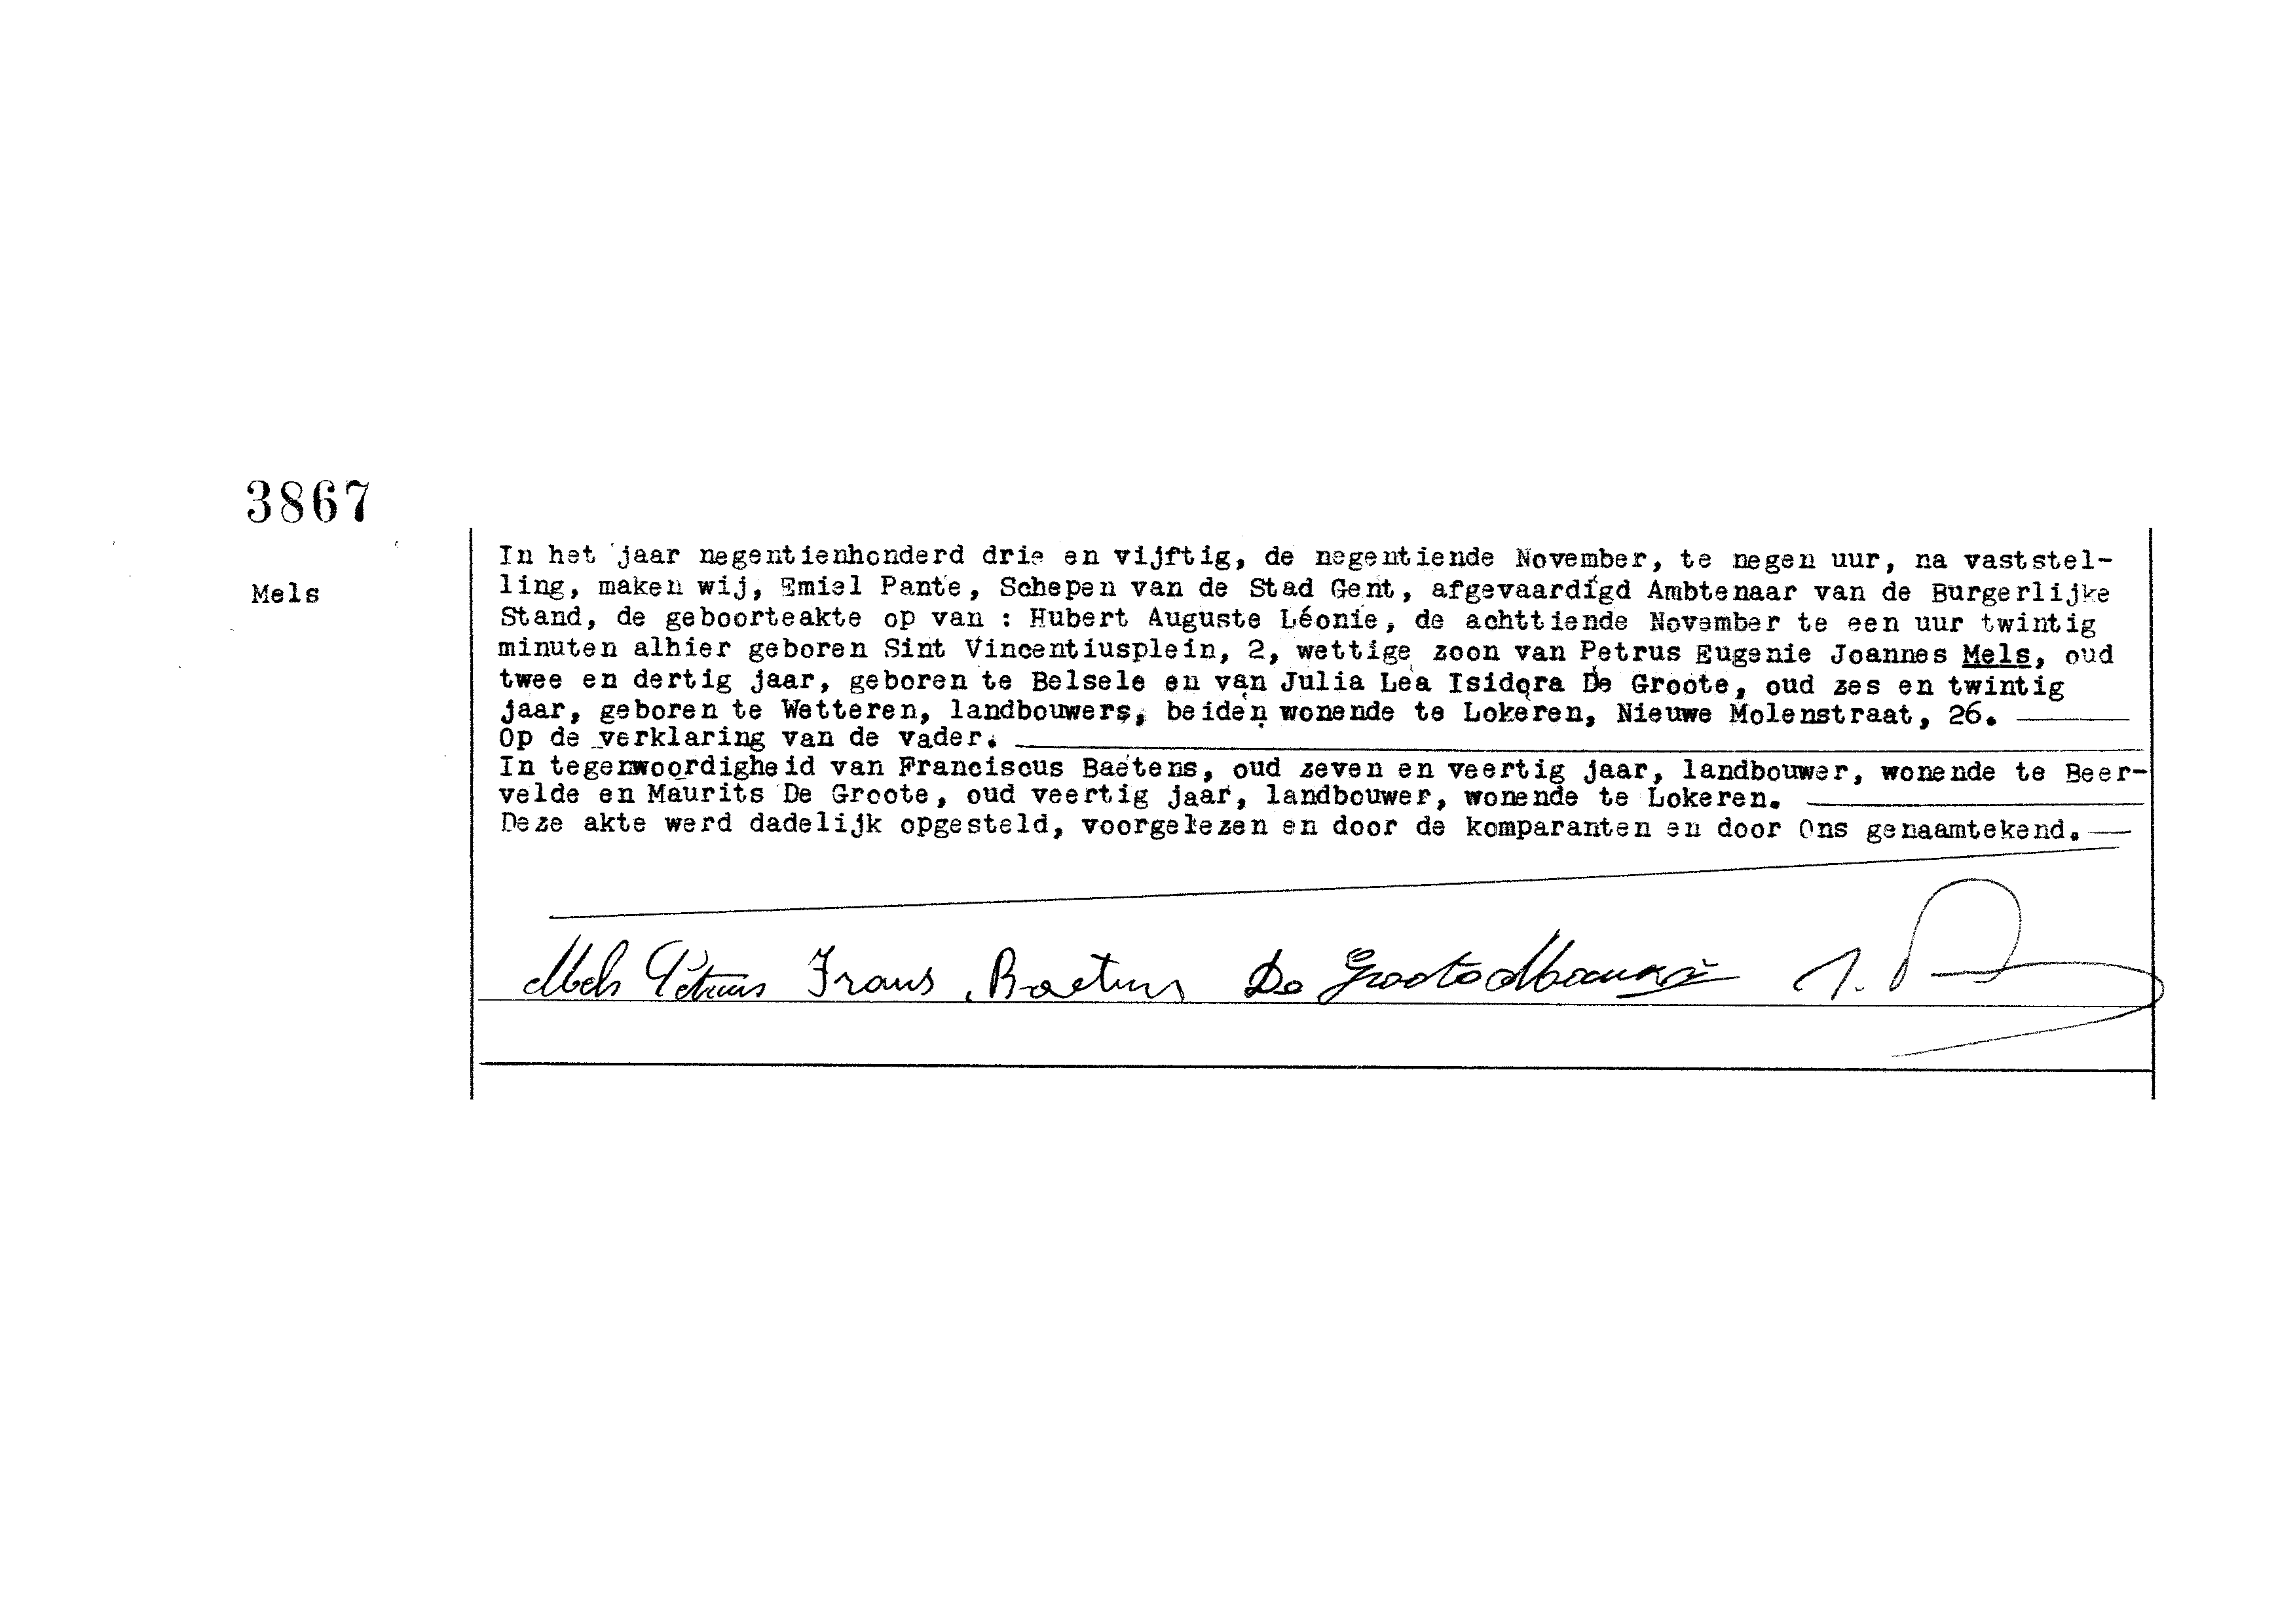 3867
Mels
In het jaar negentienhonderd drie en vijftig, de negentiende November, te negen uur, na vaststel-
ling, maken wij, Emiel Pante, Schepen van de Stad Gent, afgevaardigd Ambtenaar van de Burgerlijke
Stand, de geboorteakte op van : Hubert Auguste Léonie, de achttiende November te een uur twintig
minuten alhier geboren Sint Vincentiusplein, 2, wettige zoon van Petrus Eugenie Joannes Mels, oud
twee en dertig jaar, geboren te Belsele en van Julia Lea Isidora De Groote, oud zes en twintig
jaar, geboren te Wetteren, landbouwers, beiden wonende te Lokeren, Nieuwe Molenstraat, 26.
Op de verklaring van de vader.
In tegenwoordigheid van Franciscus Baetens, oud zeven en veertig jaar, landbouwer, wonende te Beer-
velde en Maurits De Groote, oud veertig jaar, landbouwer, wonende te Lokeren.
Deze akte werd dadelijk opgesteld, voorgelezen en door de komparanten en door Ons genaamtekend.
Mels Petrus Frans Baetens De Groote